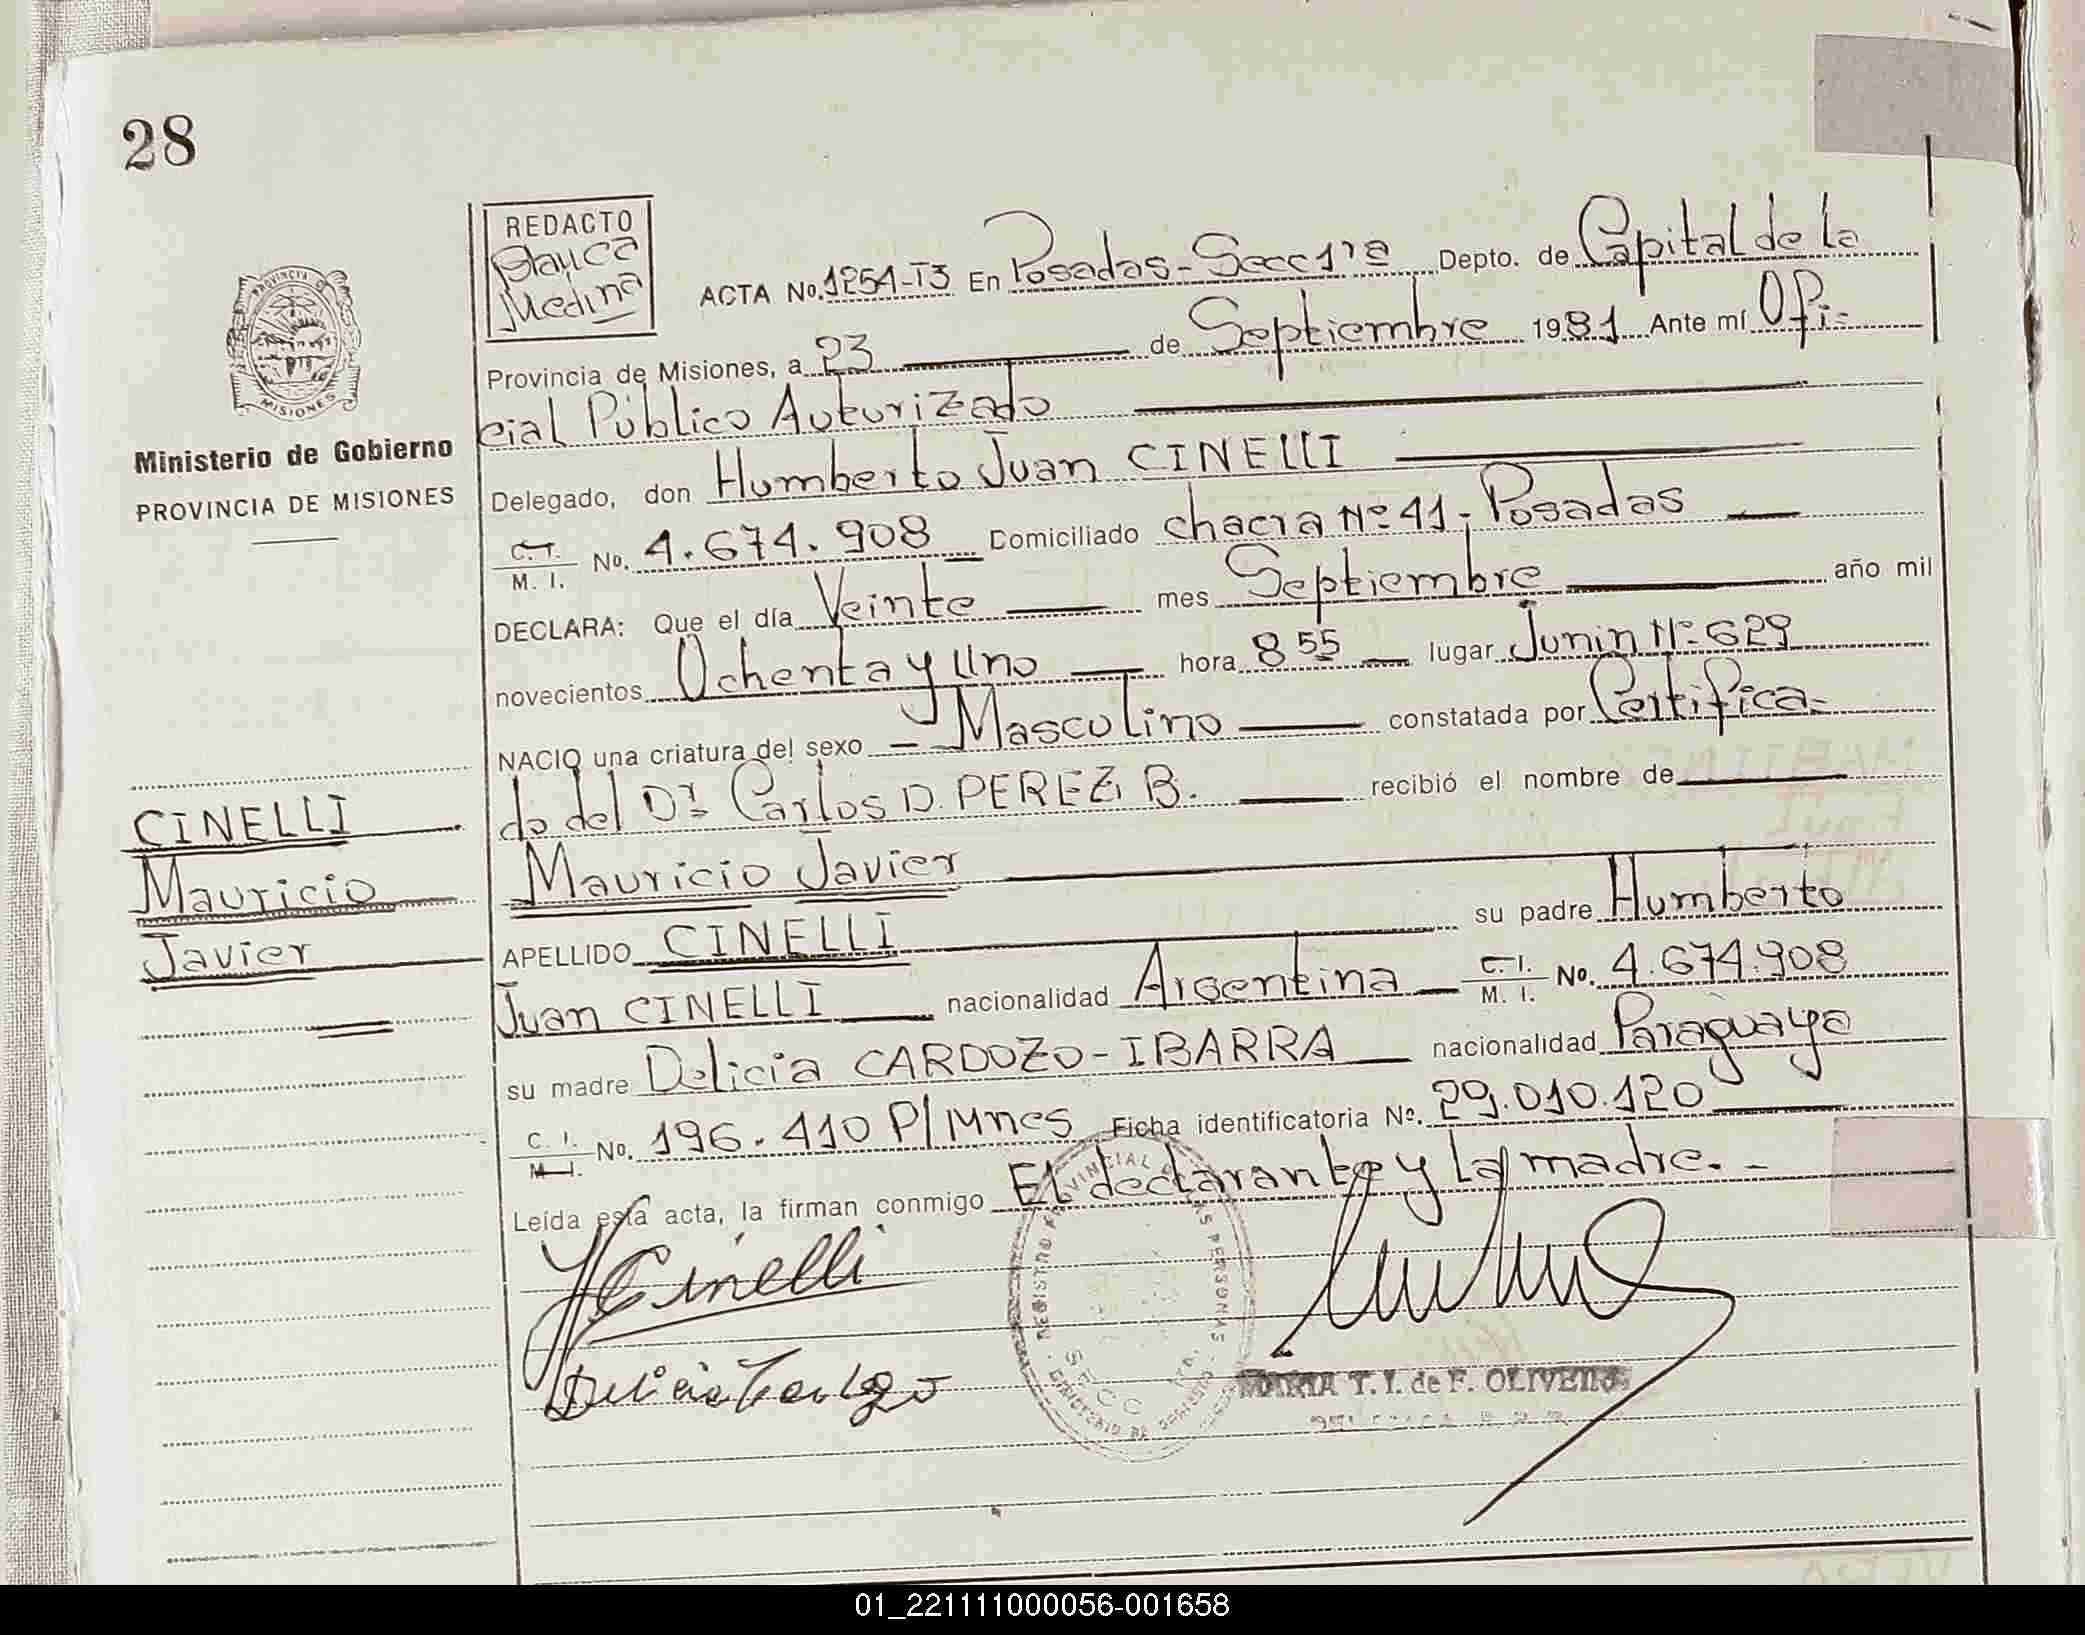 28
REDACTO
Blanca
Medina
ACTA No. 1254-T3 En Posadas-Secc 1ra Depto. de Capital de la
Provincia de Misiones, a 23 de Septiembre 1981 Ante mí Ofi-
cial Público Autorizado
PROVINCIA DE
MISIONES
Ministerio de Gobierno
PROVINCIA DE MISIONES
Delegado, don Humberto Juan CINELLI
C.I. M. I. No. 4.674.908 Domiciliado chacra Nº 41- Posadas
DECLARA: Que el día Veinte mes Septiembre año mil
novecientos Ochenta y Uno hora 8 55 lugar Junin Nº 629
NACIO una criatura del sexo - Masculino constatada por Certifica-
do del Dr. Carlos D. PEREZ B. recibió el nombre de
CINELLI
Mauricio
Javier
Mauricio Javier
APELLIDO CINELLI su padre Humberto
Juan CINELLI nacionalidad Argentina C. I. M. I. No. 4.674.908
su madre Delicia CARDOZO-IBARRA nacionalidad Paraguaya
C. I. M. I. No. 196.410 P/Mnes Ficha identificatoria No. 29.010.120
Leída esta acta, la firman conmigo El declarante y La madre.-
HCinelli
Delicia Cardozo
REGISTRO PROVINCIAL DE LAS PERSONAS
SECC 1ra.
MARIA T. I. de F. OLIVERA
01_221111000056-001658